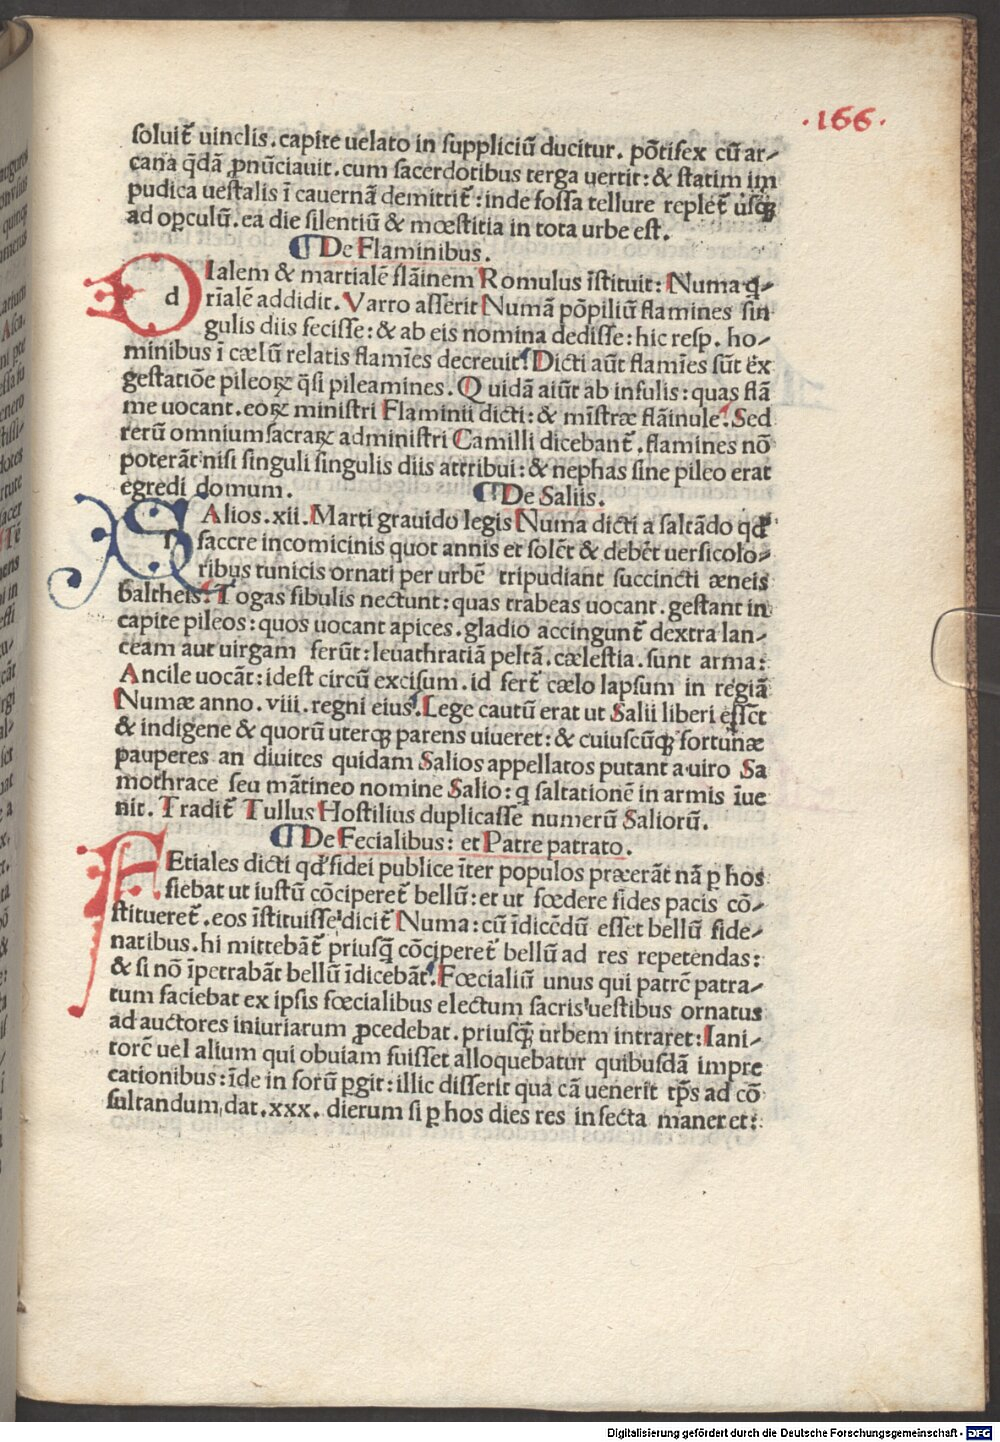 ·166·
soluit᷑ uinclis. capite uelato in suppliciū ducitur. pōtifex cū ar-
cana q̄dā ꝓnūciauit. cum sacerdotibus terga uertit: & statim im
pudica uestalis ī cauernā demittit᷑: inde fossa tellure replet᷑ usqꝫ
ad oꝑculū. ea die silentiū & mœstitia in tota urbe est.
¶ De Flaminibus.
DIalem & martialē flāinem Romulus īstituit: Numa q-
rīalē addidit. Varro asserit Numā pōpiliū flamines sin
gulis diis fecisse: & ab eis nomina dedisse: hic resp. ho-
minibus ī cælū relatis flamīes decreuit. Dicti aūt flamīes sūt ex
gestatiōe pileoꝝ q̄si pileamines. Quidā aiūt ab infulis: quas flā
me uocant. eoꝝ ministri Flaminii dicti: & mīstræ flāinule. Sed
rerū omnium sacraꝝ administri Camilli dicebant᷑. flamines nō
poterāt nisi singuli singulis diis attribui: & nephas sine pileo erat
egredi domum. ¶ De Saliis.
SAlios. xii. Marti grauido legis Numa dicti a saltādo qd᷑
saccre incomicinis quot annis et solēt & debēt uersicolo-
ribus tunicis ornati per urbē tripudiant succincti æneis
baltheis. Togas fibulis nectunt: quas trabeas uocant. gestant in
capite pileos: quos uocant apices. gladio accingunt᷑ dextra lan-
ceam aut uirgam ferūt: leuathratiā peltā. cælestia. sunt arma:
Ancile uocāt: idest circū excisum. id fert᷑ cælo lapsum in regiā
Numæ anno. viii. regni eius. Lege cautū erat ut Salii liberi essēt
& indigene & quorū uterqꝫ parens uiueret: & cuiuscūqꝫ fortunæ
pauperes an diuites quidam Salios appellatos putant a uiro Sa
mothrace seu mātineo nomine Salio: q saltationē in armis īue
nit. Tradit᷑ Tullus Hostilius duplicasse numerū Saliorū.
¶ De Fecialibus: et Patre patrato.
FEtiales dicti qd᷑ fidei publice īter populos præerāt nā ꝑ hos
fiebat ut iustū cōciperet᷑ bellū: et ut fœdere fides pacis cō-
stitueret᷑. eos īstituisse dicit᷑ Numa: cū īdicēdū esset bellū fide-
natibus. hi mittebāt᷑ priusq̄ cōciperet᷑ bellū ad res repetendas:
& si nō īpetrabāt bellū īdicebāt. Fœcialiū unus qui patrē patra-
tum faciebat ex ipsis fœcialibus electum sacris uestibus ornatus
ad auctores iniuriarum ꝓcedebat. priusq̄ urbem intraret: Iani-
torē uel alium qui obuiam fuisset alloquebatur quibusdā impre
cationibus: īde in forū ꝑgit: illic disserit qua cā uenerit tp̄s ad cō
sultandum dat. xxx. dierum si ꝑ hos dies res infecta maneret:
Digitalisierung gefördert durch die Deutsche Forschungsgemeinschaft - DFG